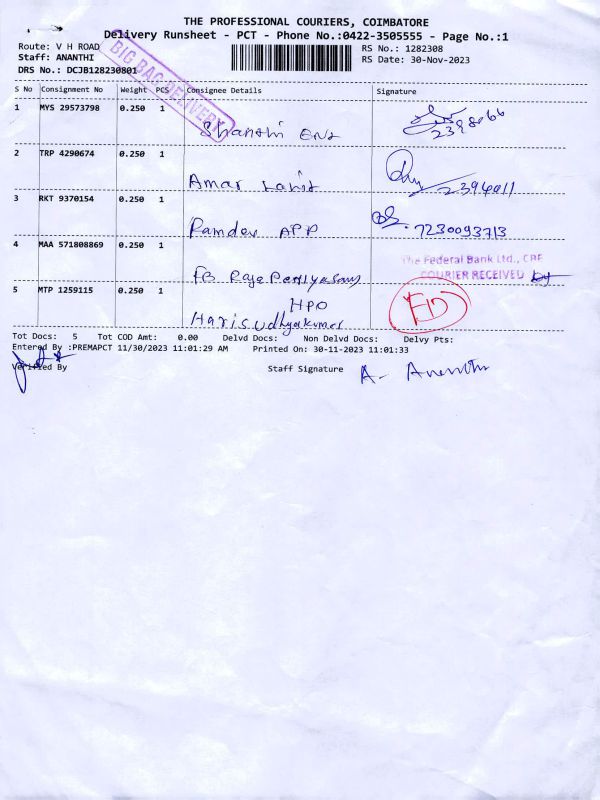 THE PROFESSIONAL COURIERS, COIMBATORE
Delivery Runsheet - PCT - Phone No.:0422-3505555 - Page No.:1
Route: V H ROAD
RS No.: 1282308
Staff: ANANTHI
RS Date: 30-Nov-2023
DRS No.: DCJB128230801
BIG BAG DELIVERY
S No Consignment No Weight PCS Consignee Details Signature
1 MYS 29573798 0.250 1
Shanthi
2 TRP 4290674 0.250 1
Amar
3 RKT 9370154 0.250 1
Ramdev APP 7230093713
4 MAA 571808869 0.250 1
The Federal Bank Ltd., CBE
COURIER RECEIVED
FB Raja
5 MTP 1259115 0.250 1
HPO
FD
Tot Docs: 5 Tot COD Amt: 0.00 Delvd Docs: Non Delvd Docs: Delvy Pts:
Entered By :PREMAPCT 11/30/2023 11:01:29 AM Printed On: 30-11-2023 11:01:33
Verified By
Staff Signature A. Ananthi